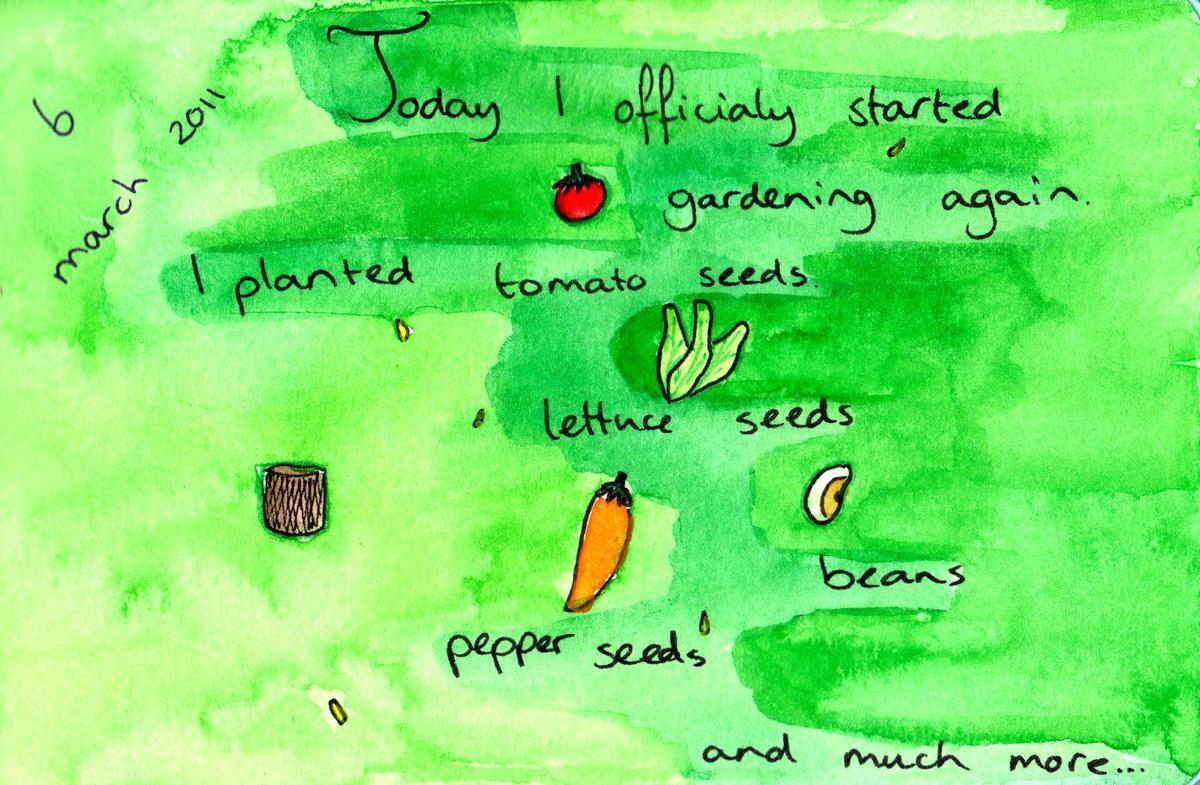 6 march 2011
Today I officialy started
gardening again.
I planted tomato seeds.
lettuce seeds
beans
pepper seeds
and much more...